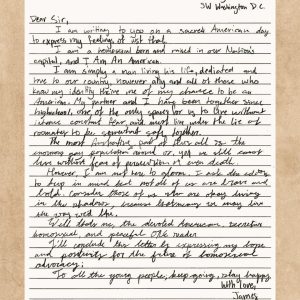 SW Washington D.C.
Dear Sir,
I am writing to you on a sacred American day
to express my feelings of just that.
I am a homosexual born and raised in our Nation's
capital, and I Am An American.
I am simply a man living his life, dedicated and
true to our country, however ally and all of those who
know my identity me of my chance to be an
American. My partner and I have been together since
highschool. One of the only ways for us to live without
constant fear and must live under the lie of
roommates to be somewhat safe together.
The most part of it all is the
population around us, yet we still cannot
live without fear of persecution or even death.
However, I am not here to gloom. I ask dear
to keep in mind that of us are brave and
bold. Consider those of us who are okay living
in the shadows, because that may us
the way we'd like.
Well that's me, the devoted American,
homosexual, and peaceful reader.
I'll conclude this letter by expressing my hope
and for the future of homosexual
advocacy.
To all the young people, keep going, stay happy.
With love,
James